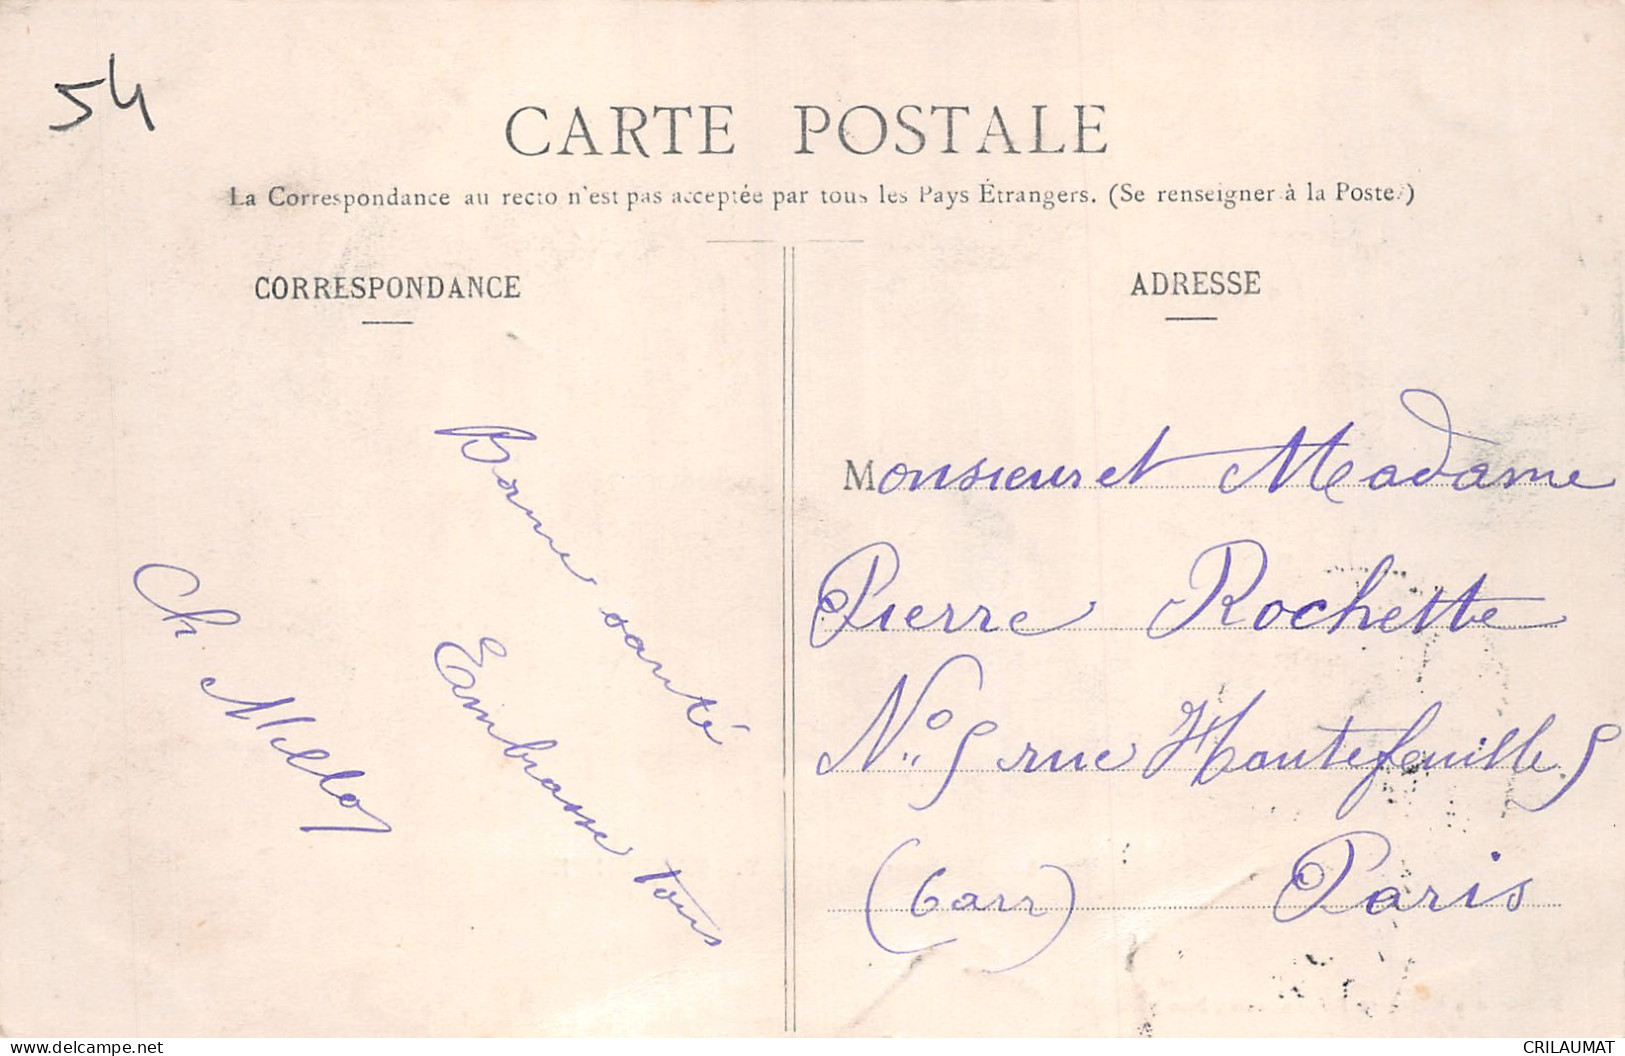 54
CARTE POSTALE
La Correspondance au recto n'est pas acceptée par tous les Pays Étrangers. (Se renseigner à la Poste.)
CORRESPONDANCE
Bonne santé
Embrasse tous
Ch Millo
ADRESSE
Monsieur et Madame
Pierre Rochette
No 5 rue Hautefeuille 5
(6 arr) Paris
www.delcampe.net
CRILAUMAT